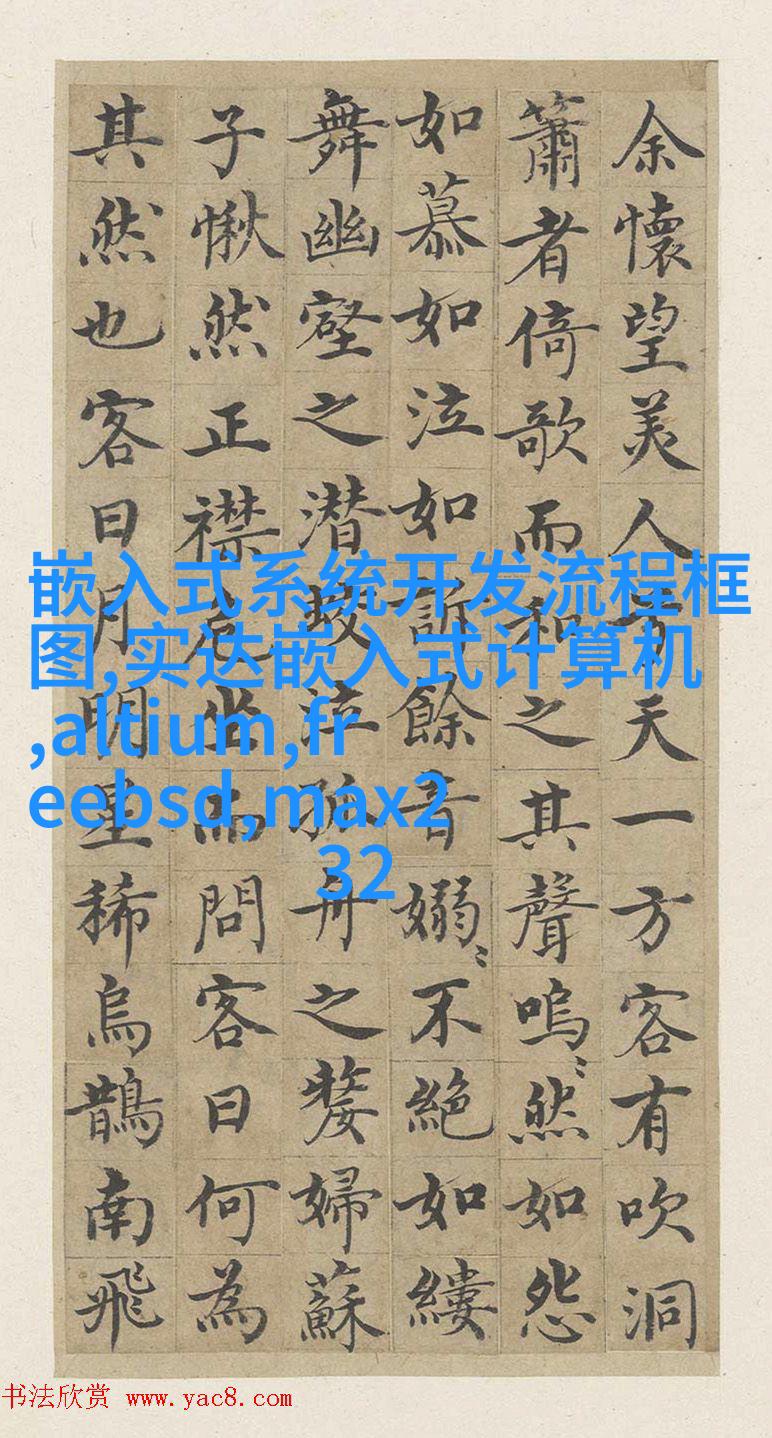 余懷望美人兮天一方客有吹洞
簫者倚歌而和之其聲嗚〻然如怨
如慕如泣如訴餘音嫋〻不絕如縷
舞幽壑之潛蛟泣孤舟之嫠婦蘇
子愀然正襟危坐而問客曰何為
其然也客曰月明星稀烏鵲南飛
嵌入式系统开发流程框
图,实达嵌入式计算机
,altium,fr
eebsd,max2
32
书法欣赏 www.yac8.com